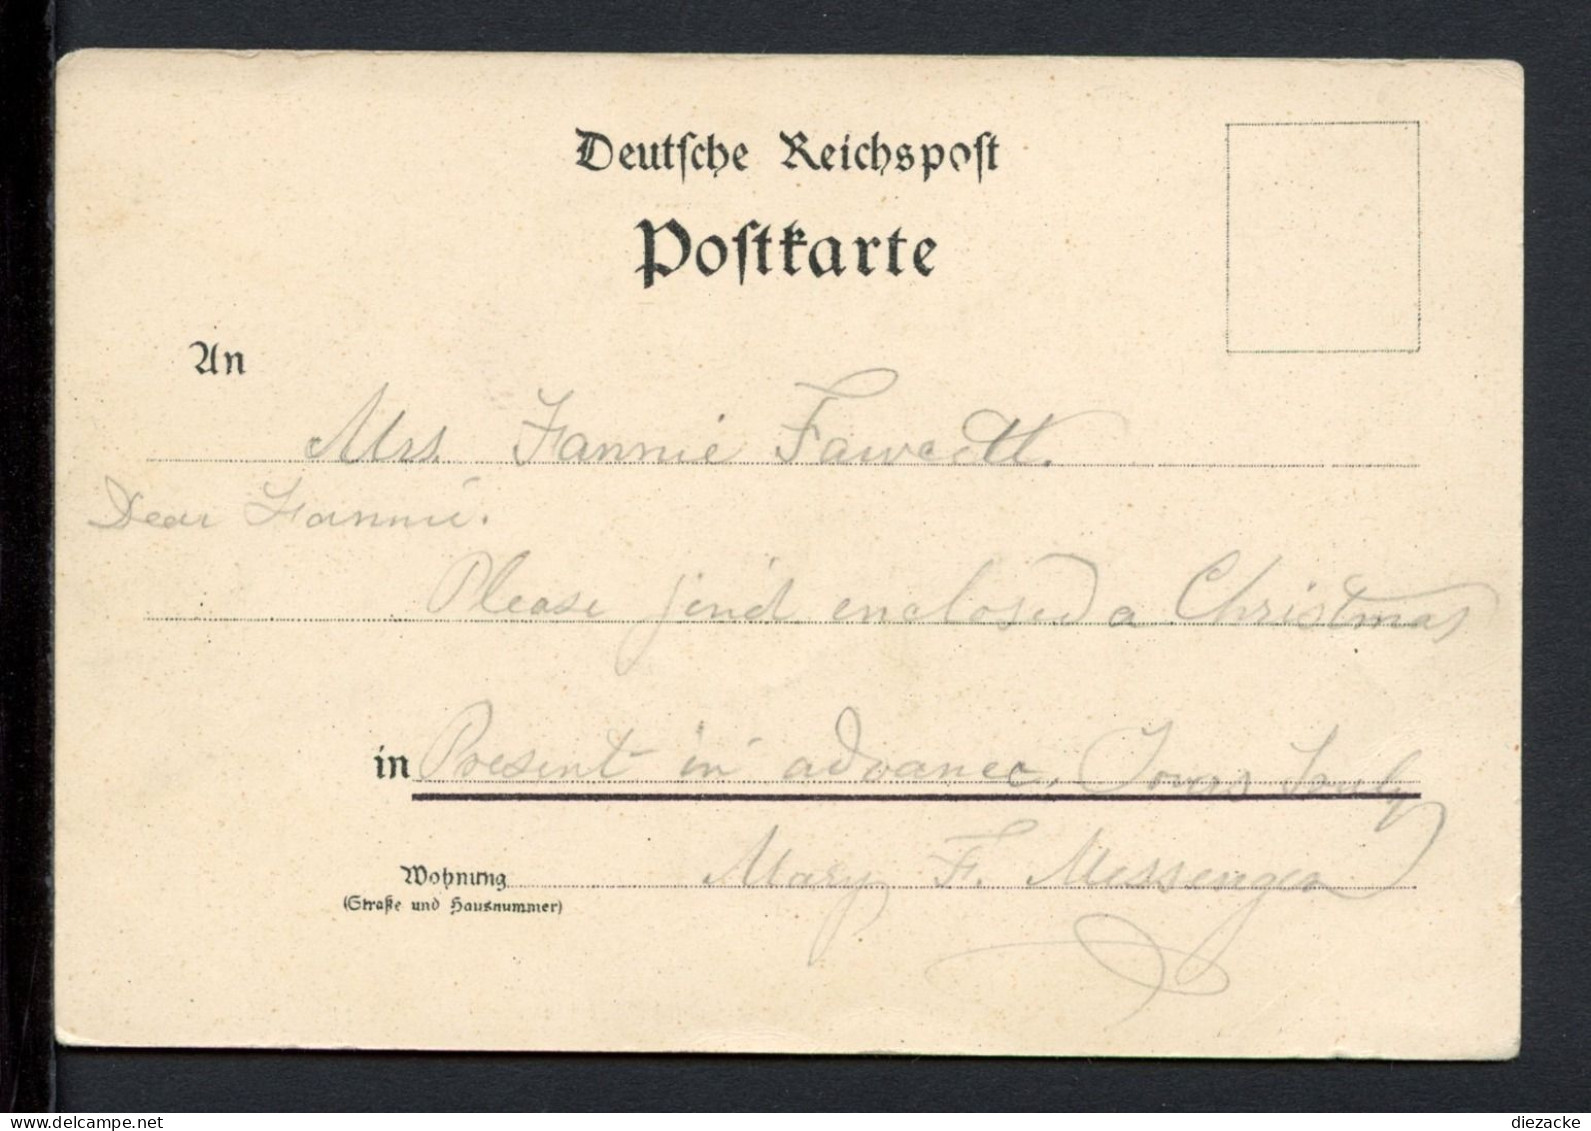 Deutsche Reichspost
Postkarte
An
Mrs. Fannie Fawcett.
Dear Fannie.
Please find enclosed a Christmas
in Present in advance, Yours Truly
Wohnung Mary F. Messenger
(Straße und Hausnummer)
www.delcampe.net
diezacke